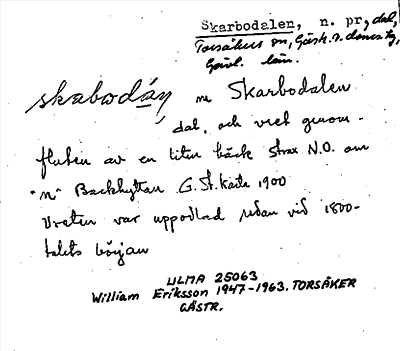 Skarbodalen, n. pr., dal,
Torsåkers sn, Gästr.
Gävl. län.
skabodáy m Skarbodalen
dal. och vret genom-
fluten av en liten bäck strax N.O. om
"m" Backhyttan G. St. karta 1900
Vreten var uppodlad redan vid 1800-
talets början
ULMA 25063
William Eriksson 1947-1963. TORSÅKER
GÄSTR.